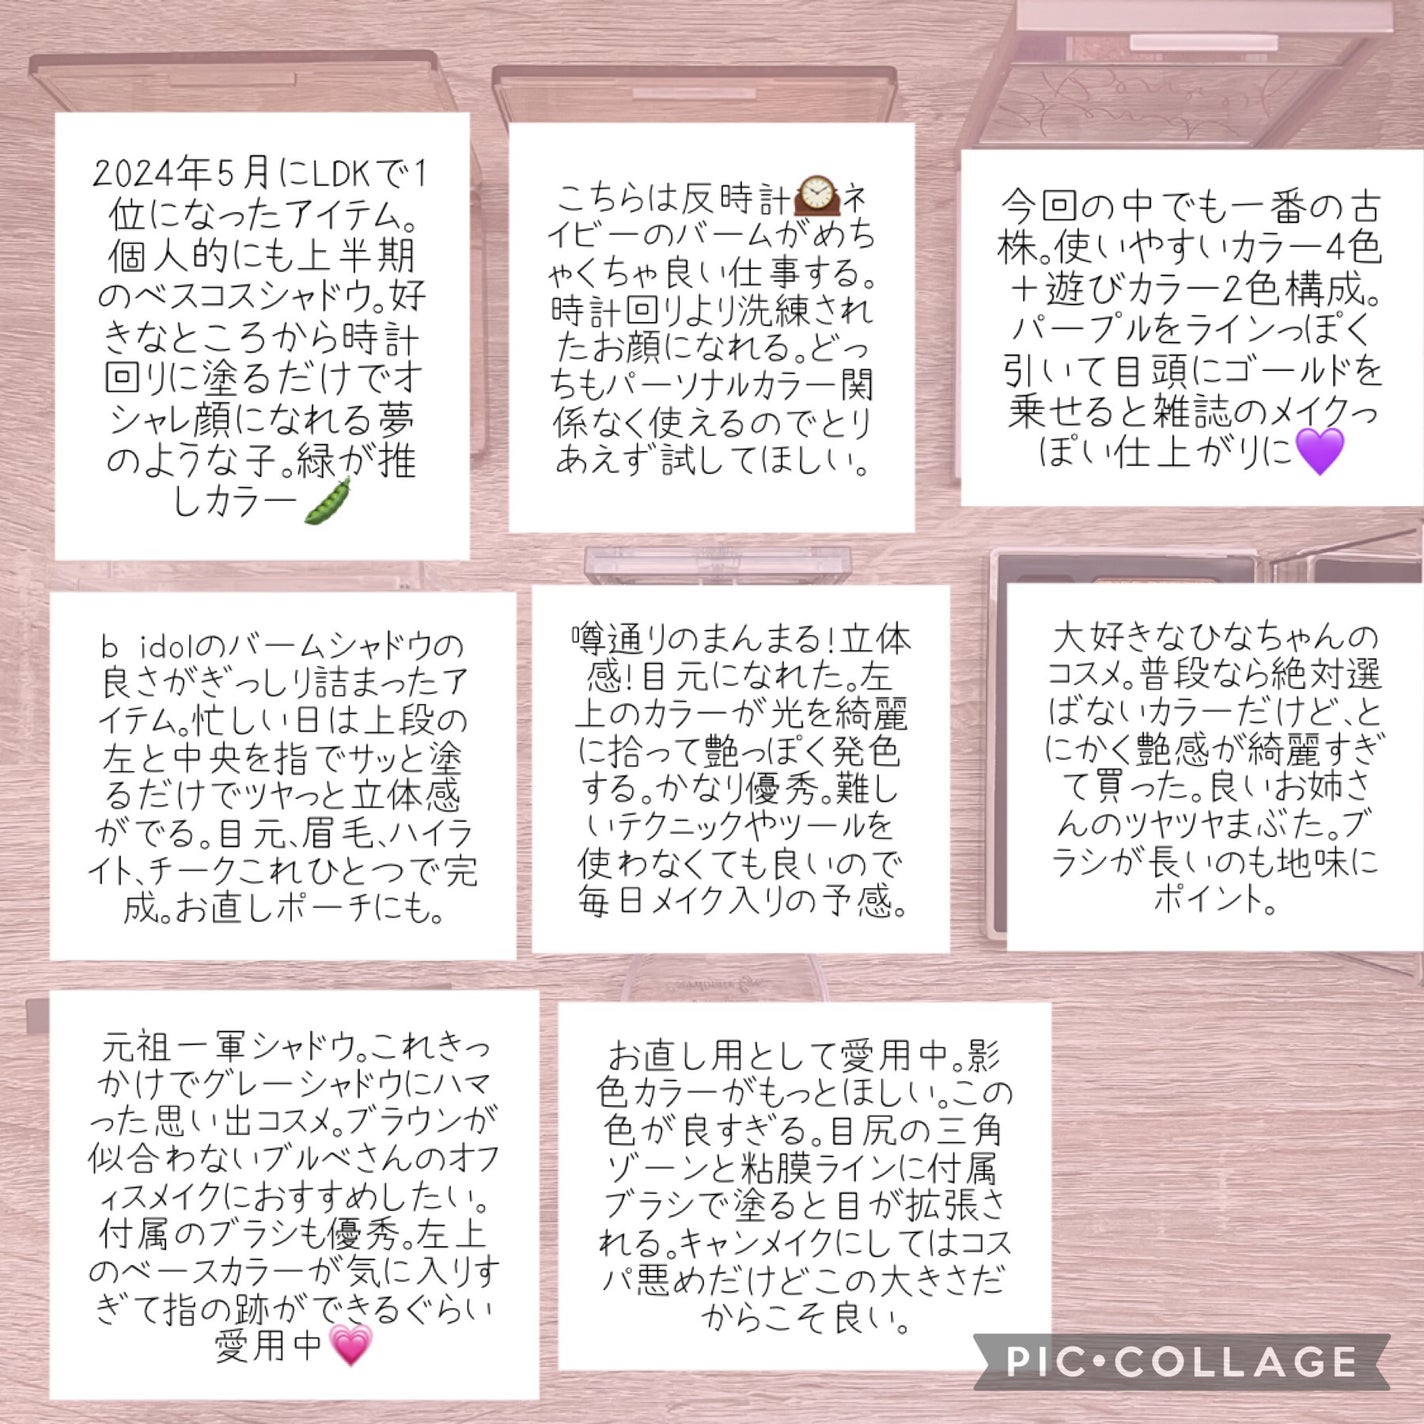 2024年5月にLDKで1
位になったアイテム。
個人的にも上半期
のベスコスシャドウ。好
きなところから時計
回りに塗るだけでオ
シャレ顔になれる夢
のような子。緑が推
しカラー🫛
こちらは反時計🕰️ネ
イビーのバームがめち
ゃくちゃ良い仕事する。
時計回りより洗練され
たお顔になれる。どっ
ちもパーソナルカラー関
係なく使えるのでとり
あえず試してほしい。
今回の中でも一番の古
株。使いやすいカラー4色
＋遊びカラー2色構成。
パープルをラインっぽく
引いて目頭にゴールドを
乗せると雑誌のメイクっ
ぽい仕上がりに💜
b idolのバームシャドウの
良さがぎっしり詰まったア
イテム。忙しい日は上段の
左と中央を指でサッと塗
るだけでツヤっと立体感
がでる。目元、眉毛、ハイラ
イト、チークこれひとつで完
成。お直しポーチにも。
噂通りのまんまる！立体
感！目元になれた。左
上のカラーが光を綺麗
に拾って艶っぽく発色
する。かなり優秀。難し
いテクニックやツールを
使わなくても良いので
毎日メイク入りの予感。
大好きなひなちゃんの
コスメ。普段なら絶対選
ばないカラーだけど、と
にかく艶感が綺麗すぎ
て買った。良いお姉さ
んのツヤツヤまぶた。ブ
ラシが長いのも地味に
ポイント。
元祖一軍シャドウ。これきっ
かけでグレーシャドウにハマ
った思い出コスメ。ブラウンが
似合わないブルベさんのオフ
ィスメイクにおすすめしたい。
付属のブラシも優秀。左上
のベースカラーが気に入りす
ぎて指の跡ができるぐらい
愛用中💗
お直し用として愛用中。影
色カラーがもっとほしい。この
色が良すぎる。目尻の三角
ゾーンと粘膜ラインに付属
ブラシで塗ると目が拡張さ
れる。キャンメイクにしてはコス
パ悪めだけどこの大きさだ
からこそ良い。
PIC•COLLAGE